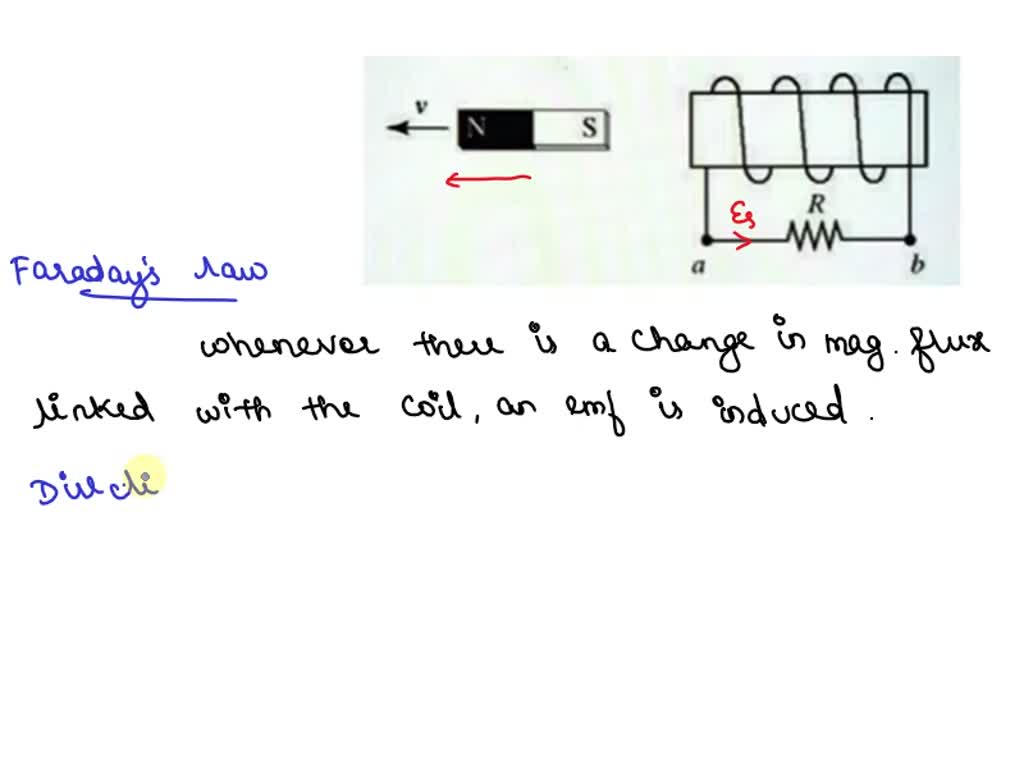 v
N S
Es R
a b
Faraday's law
whenever there is a change in mag. flux
linked with the coil, an emf is induced.
Directi